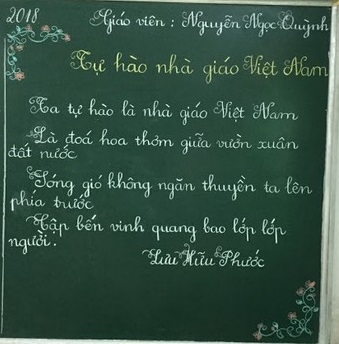 2018
Giáo viên : Nguyễn Ngọc Quỳnh
Tự hào nhà giáo Việt Nam
Ta tự hào là nhà giáo Việt Nam
Là đoá hoa thơm giữa vườn xuân
đất nước
Sóng gió không ngăn thuyền ta lên
phía trước
Cập bến vinh quang bao lớp lớp
người..
Lưu Hữu Phước